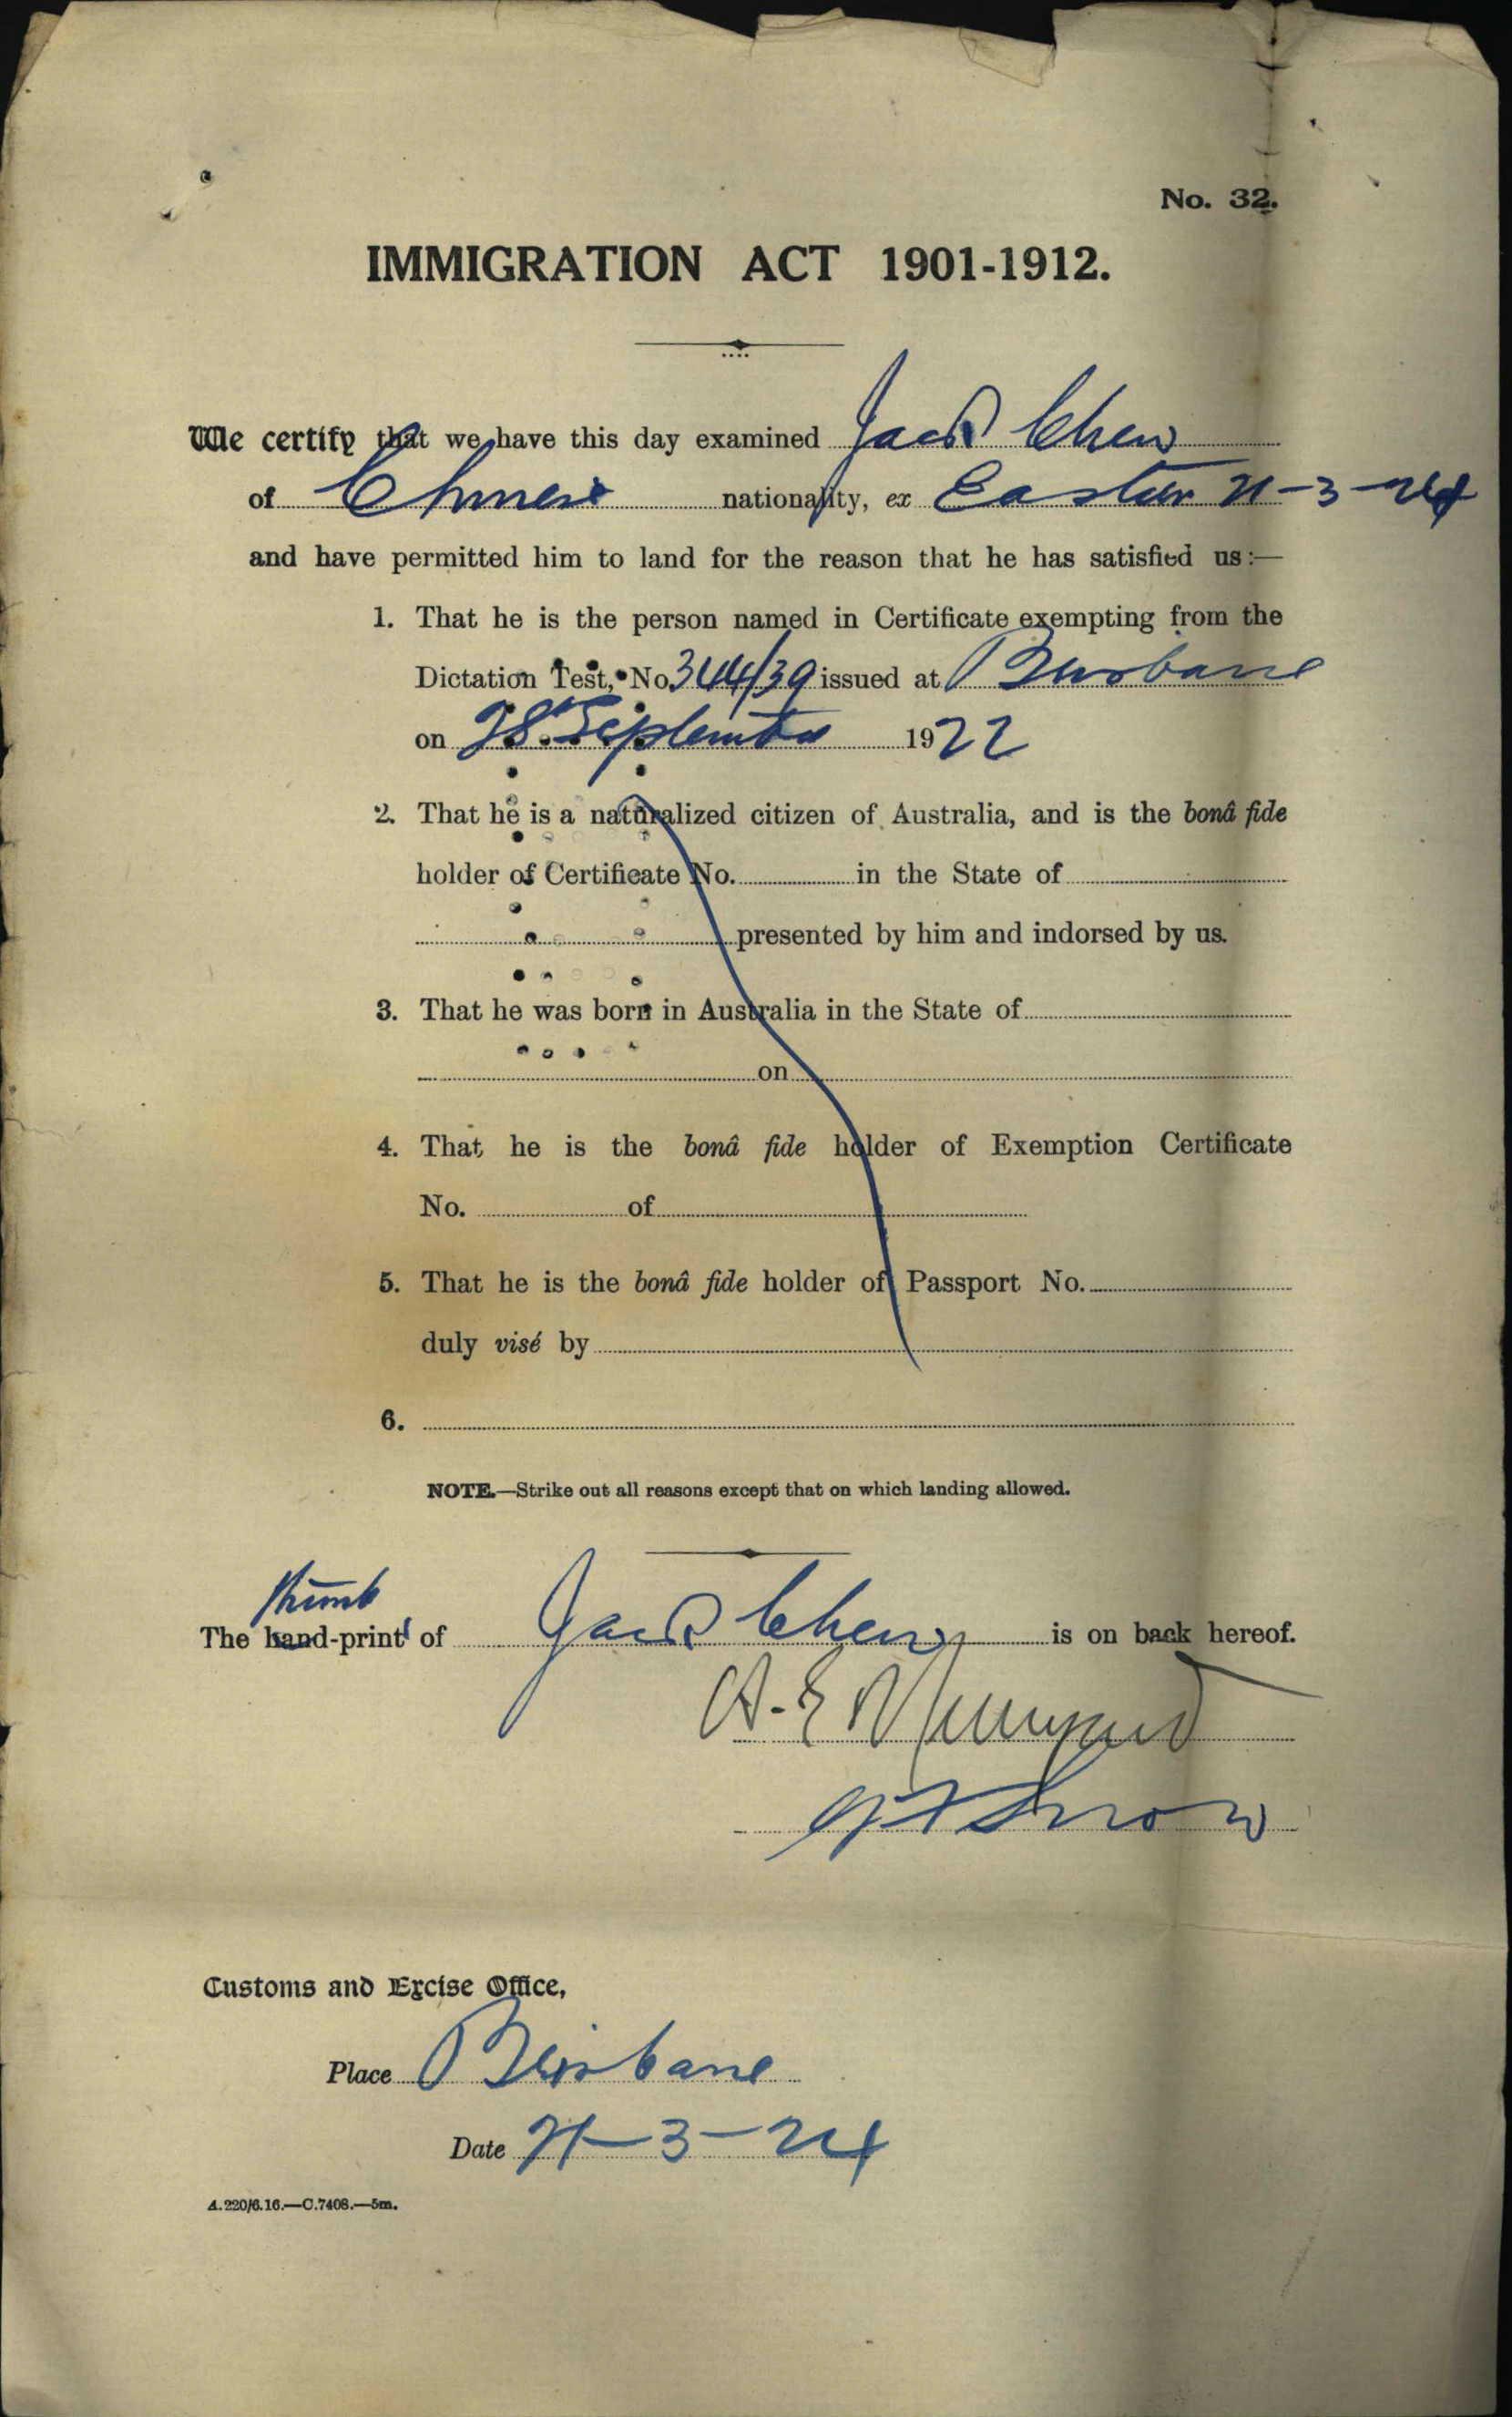 No. 32.
IMMIGRATION ACT 1901-1912.
We certify that we have this day examined Jack Chew
of Chinese nationality, ex Eastern 21-3-24
and have permitted him to land for the reason that he has satisfied us:—
1. That he is the person named in Certificate exempting from the
Dictation Test, No. 344/39 issued at Brisbane
on 28th September 1922
2. That he is a naturalized citizen of Australia, and is the bonâ fide
holder of Certificate No. in the State of
presented by him and indorsed by us.
3. That he was born in Australia in the State of
on
4. That he is the bonâ fide holder of Exemption Certificate
No. of
5. That he is the bonâ fide holder of Passport No.
duly visé by
6.
NOTE.—Strike out all reasons except that on which landing allowed.
thumb
The hand-print of Jack Chew is on back hereof.
Customs and Excise Office,
Place Brisbane
Date 21-3-24
A.220/6.16.—C.7408.—5m.